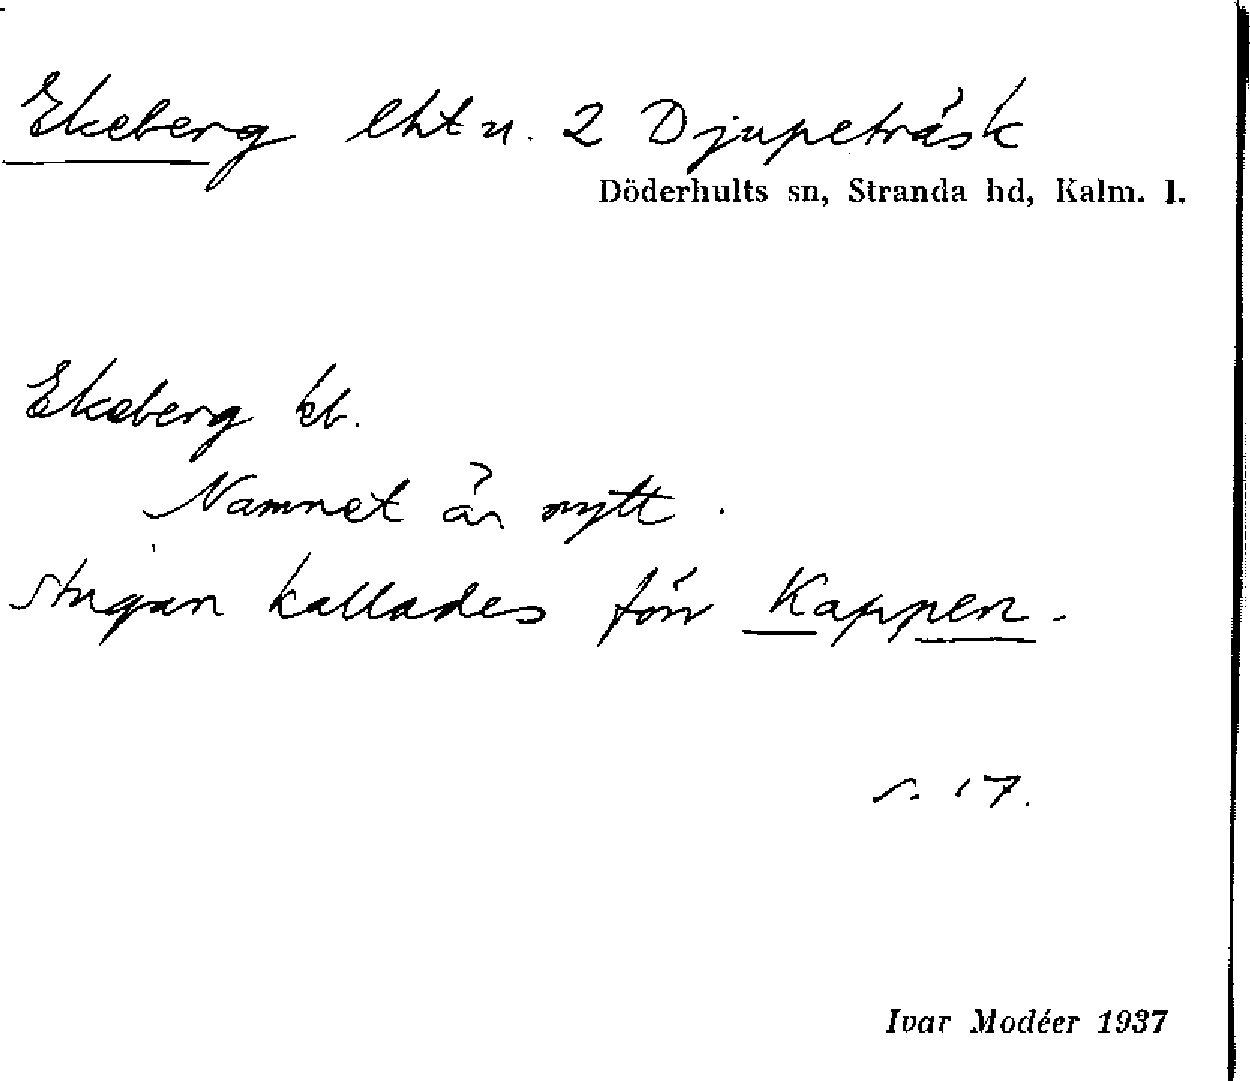 Ekeberg lht u. 2 Djupeträsk
Döderhults sn, Stranda hd, Kalm. l.
Ekeberg kb.
Namnet är nytt.
Stugan kallades förr Kappen.
s. 17.
Ivar Modéer 1937